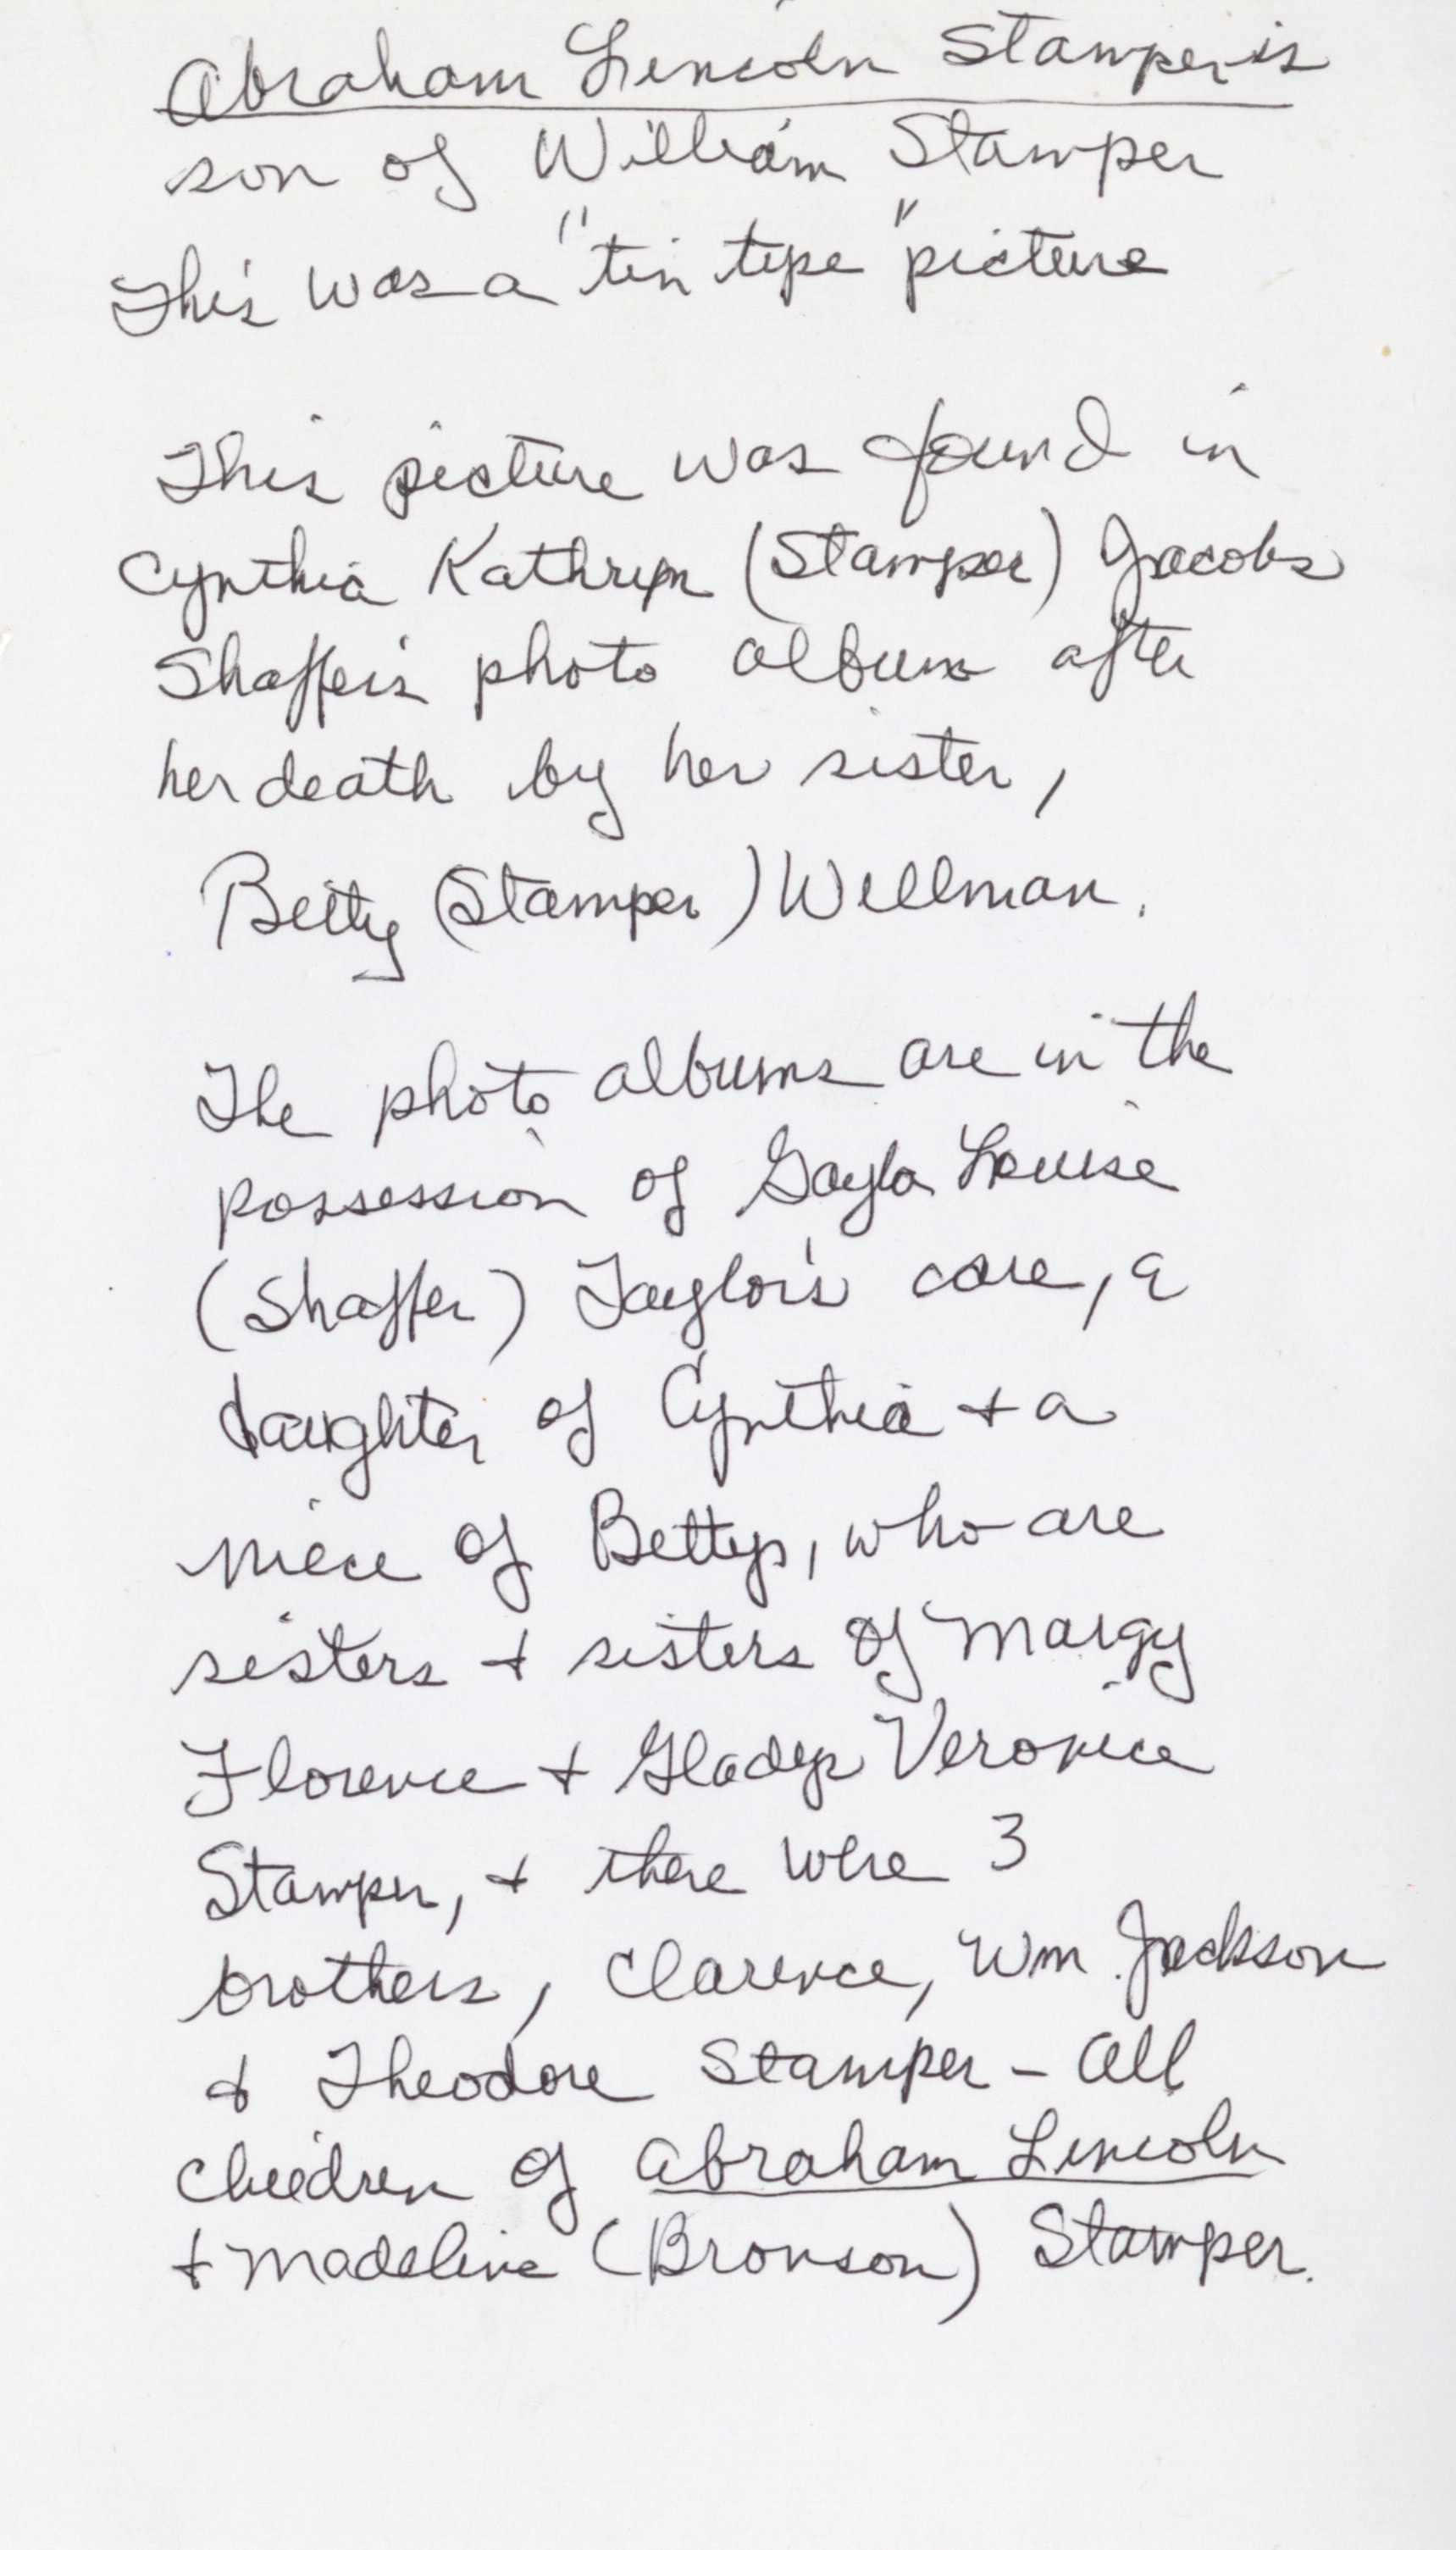 Abraham Lincoln Stamper is
son of William Stamper
This was a "tin type" picture
This picture was found in
Cynthia Kathryn (Stamper) Jacobs
Shaffer's photo album after
her death by her sister,
Betty (Stamper) Wellman.
The photo albums are in the
possession of Gayla Louise
(Shaffer) Taylor's care, a
daughter of Cynthia + a
niece of Bettys, who are
sisters + sisters of Margy
Florence + Gladys Veronica
Stamper, + there were 3
brothers, Clarence, Wm Jackson
+ Theodore Stamper - All
children of Abraham Lincoln
+ Madeline (Bronson) Stamper.